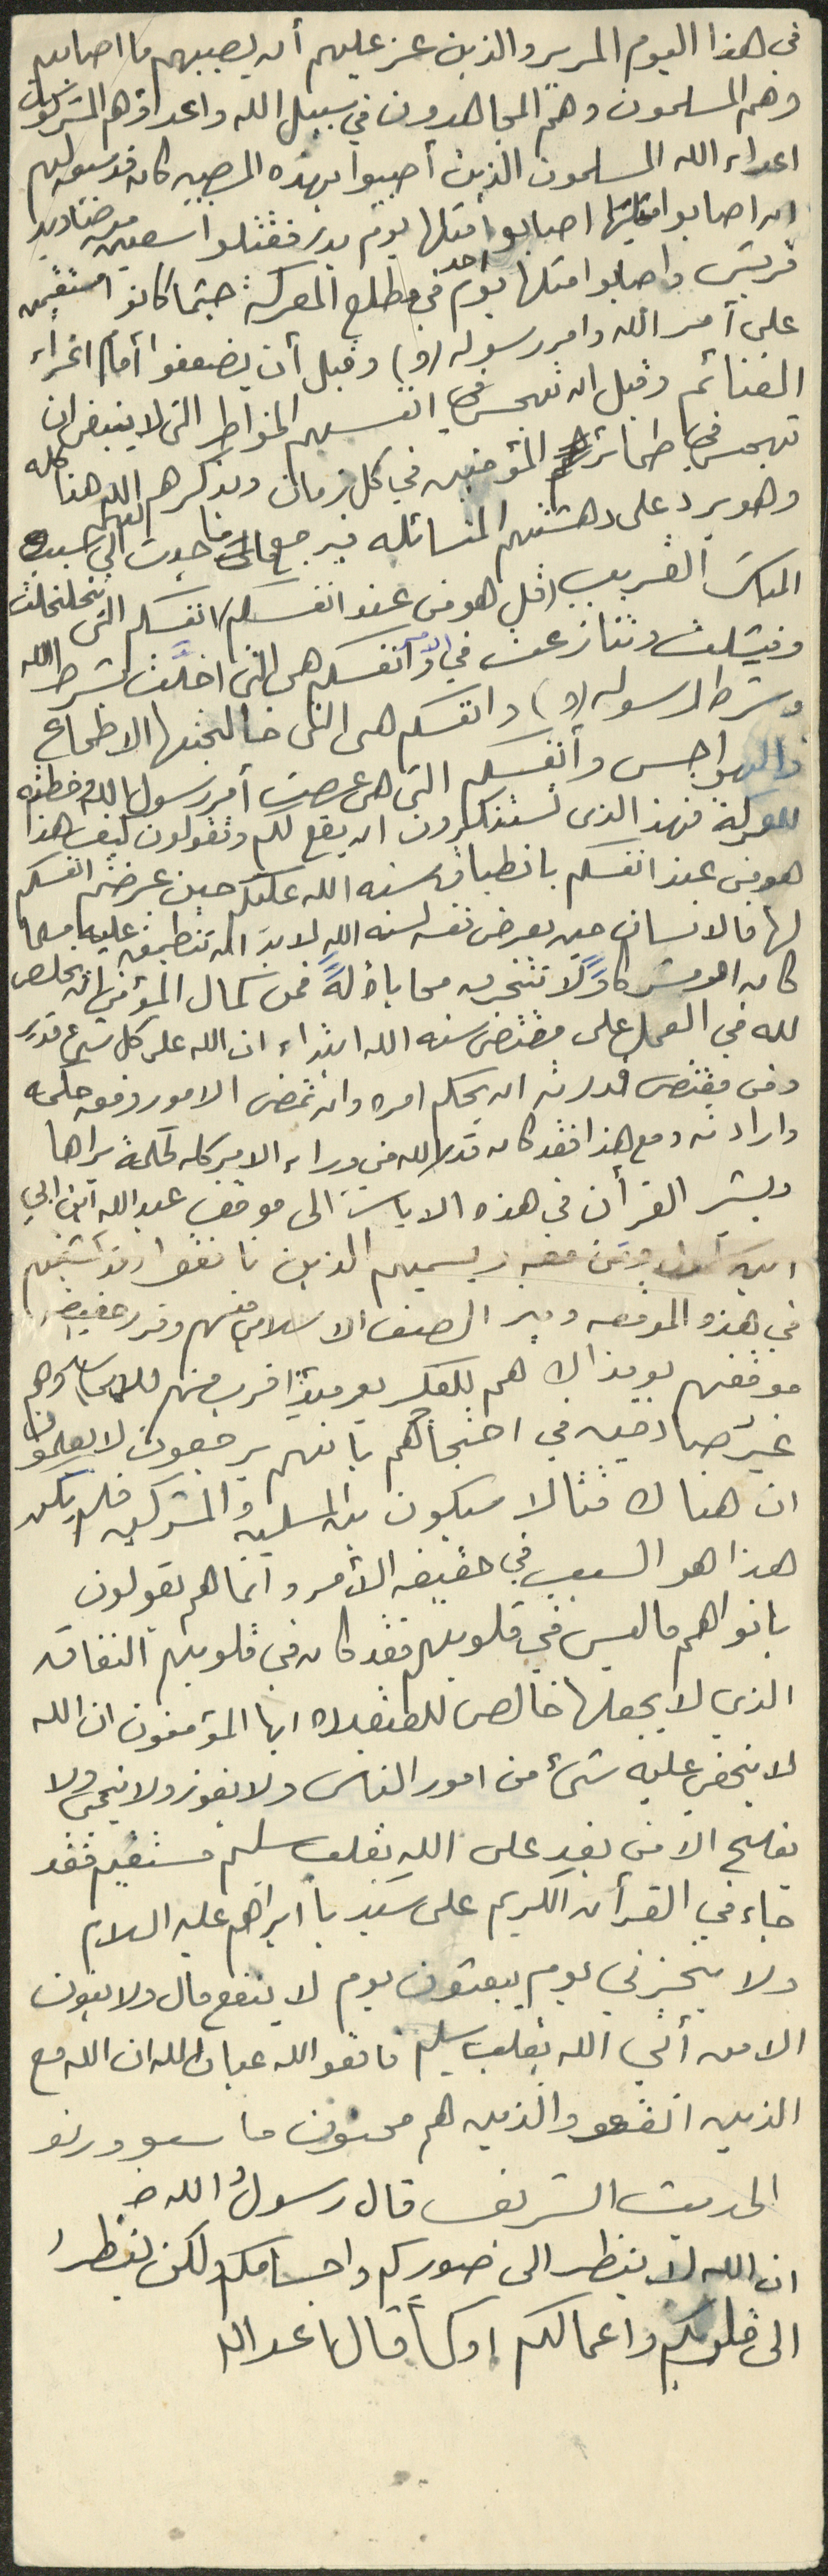 في هذا اليوم المرير والذين عز عليهم أن يصيبهم ما اصابهم
وهم المسلمون وهم المجاهدون في سبيل الله واعداؤهم المشركون
اعداء الله المسلمون الذين أصيبوا بهذه المصيبه كان قد سبق لهم
ان اصابوا مثليها اصابوا مثلها يوم بدر فقتلوا سبعين من صناديد
قريش واصابوا مثلها يوم احد في مطلع المعركة حيثما كانو مستقيمين
على أمر الله وامر رسوله (و) وقبل أن يضعفوا أمام اغراء
الغنائم وقبل ان تهجس في انفسهم الخواطر التى لا ينبغي ان
تهجس في ضمائر المؤمنين في كل زمان ويذكرهم الله هذا كله
وهو يرد على دهشتهم المتسائله فيرجع ما حدث لهم الى سببه
المباشر القريب (قل هو من عند انفسكم) انفسكم التى تخلخلت
وفشلت وتنازعت في الامر وأنفسكم هى التى اخلّت بشرط الله
وشرط رسوله (و) وانفسكم هى التى خالجتها الاطماع
والهواجس وأنفسكم التى هى عصت أمر رسول الله وخطته
للمعركة فهذا الذى تستنكرون ان يقع لكم وتقولون كيف هذا
هو من عند انفسكم بانطباق سنه الله عليكم حين عرضتم انفسكم
لها فالانسان حين يعرض نفسه لسنه الله لا بدّ ان تنطبق عليه مسلما
كان او مشركاً ولا تنخرق محاباة له فمن كمال المؤمن ان يخلص
لله في العمل على مقتضى سنه الله ابتداء ان الله على كل شيء قدير
ومن مقتضى قدرته ان يحكم امره وان تمضى الامور وفق حكمه
وارادته ومع هذا فقد كان قدر الله من وراء الامر كله لحكمة يراها
ويشير القرأن في هذه الايات الى موقف عبد الله ابن ابي
ابن سلول ومن معه ويسميهم الذين نافقوا وقد كشفهم
في هذه الموقعه وميز الصف الاسلامي منهم وقرر حقيقة
موقفهم يومذاك هم للكفر يومئذ اقرب منهم للايمان وهم
غير صادقين في احتجاجهم بانهم يرجعون لا يعلمون
ان هناك قتالا سيكون بين المسلمين والمشركين فلم يكن
هذا هو السبب في حقيقه الأمر وانما هم يقولون
بافواههم ما ليس في قلوبهم فقد كان في قلوبهم النفاق
الذي لا يجعلها خالص للعقيده ايها المؤمنون ان الله
لا يخفى عليه شئ من امور الناس ولا يفوز ولا ينجى ولا
يفلح الا من يفد على الله بقلب سليم مستقيم فقد
جاء في القرأن الكريم على سيدنا ابراهيم عليه السلام
ولا تخزني يوم يبعثون يوم لا ينفع مال ولا بنون
الا من أتى الله بقلب سليم فاتقو الله عباد الله ان الله مع
الذين اتقو والذين هم محسنون
الحديث الشريف قال رسول الله ص
ان الله لا ينظر الى صوركم واجسامكم ولكن ينظر
الى قلوبكم واعمالكم اوكما قال